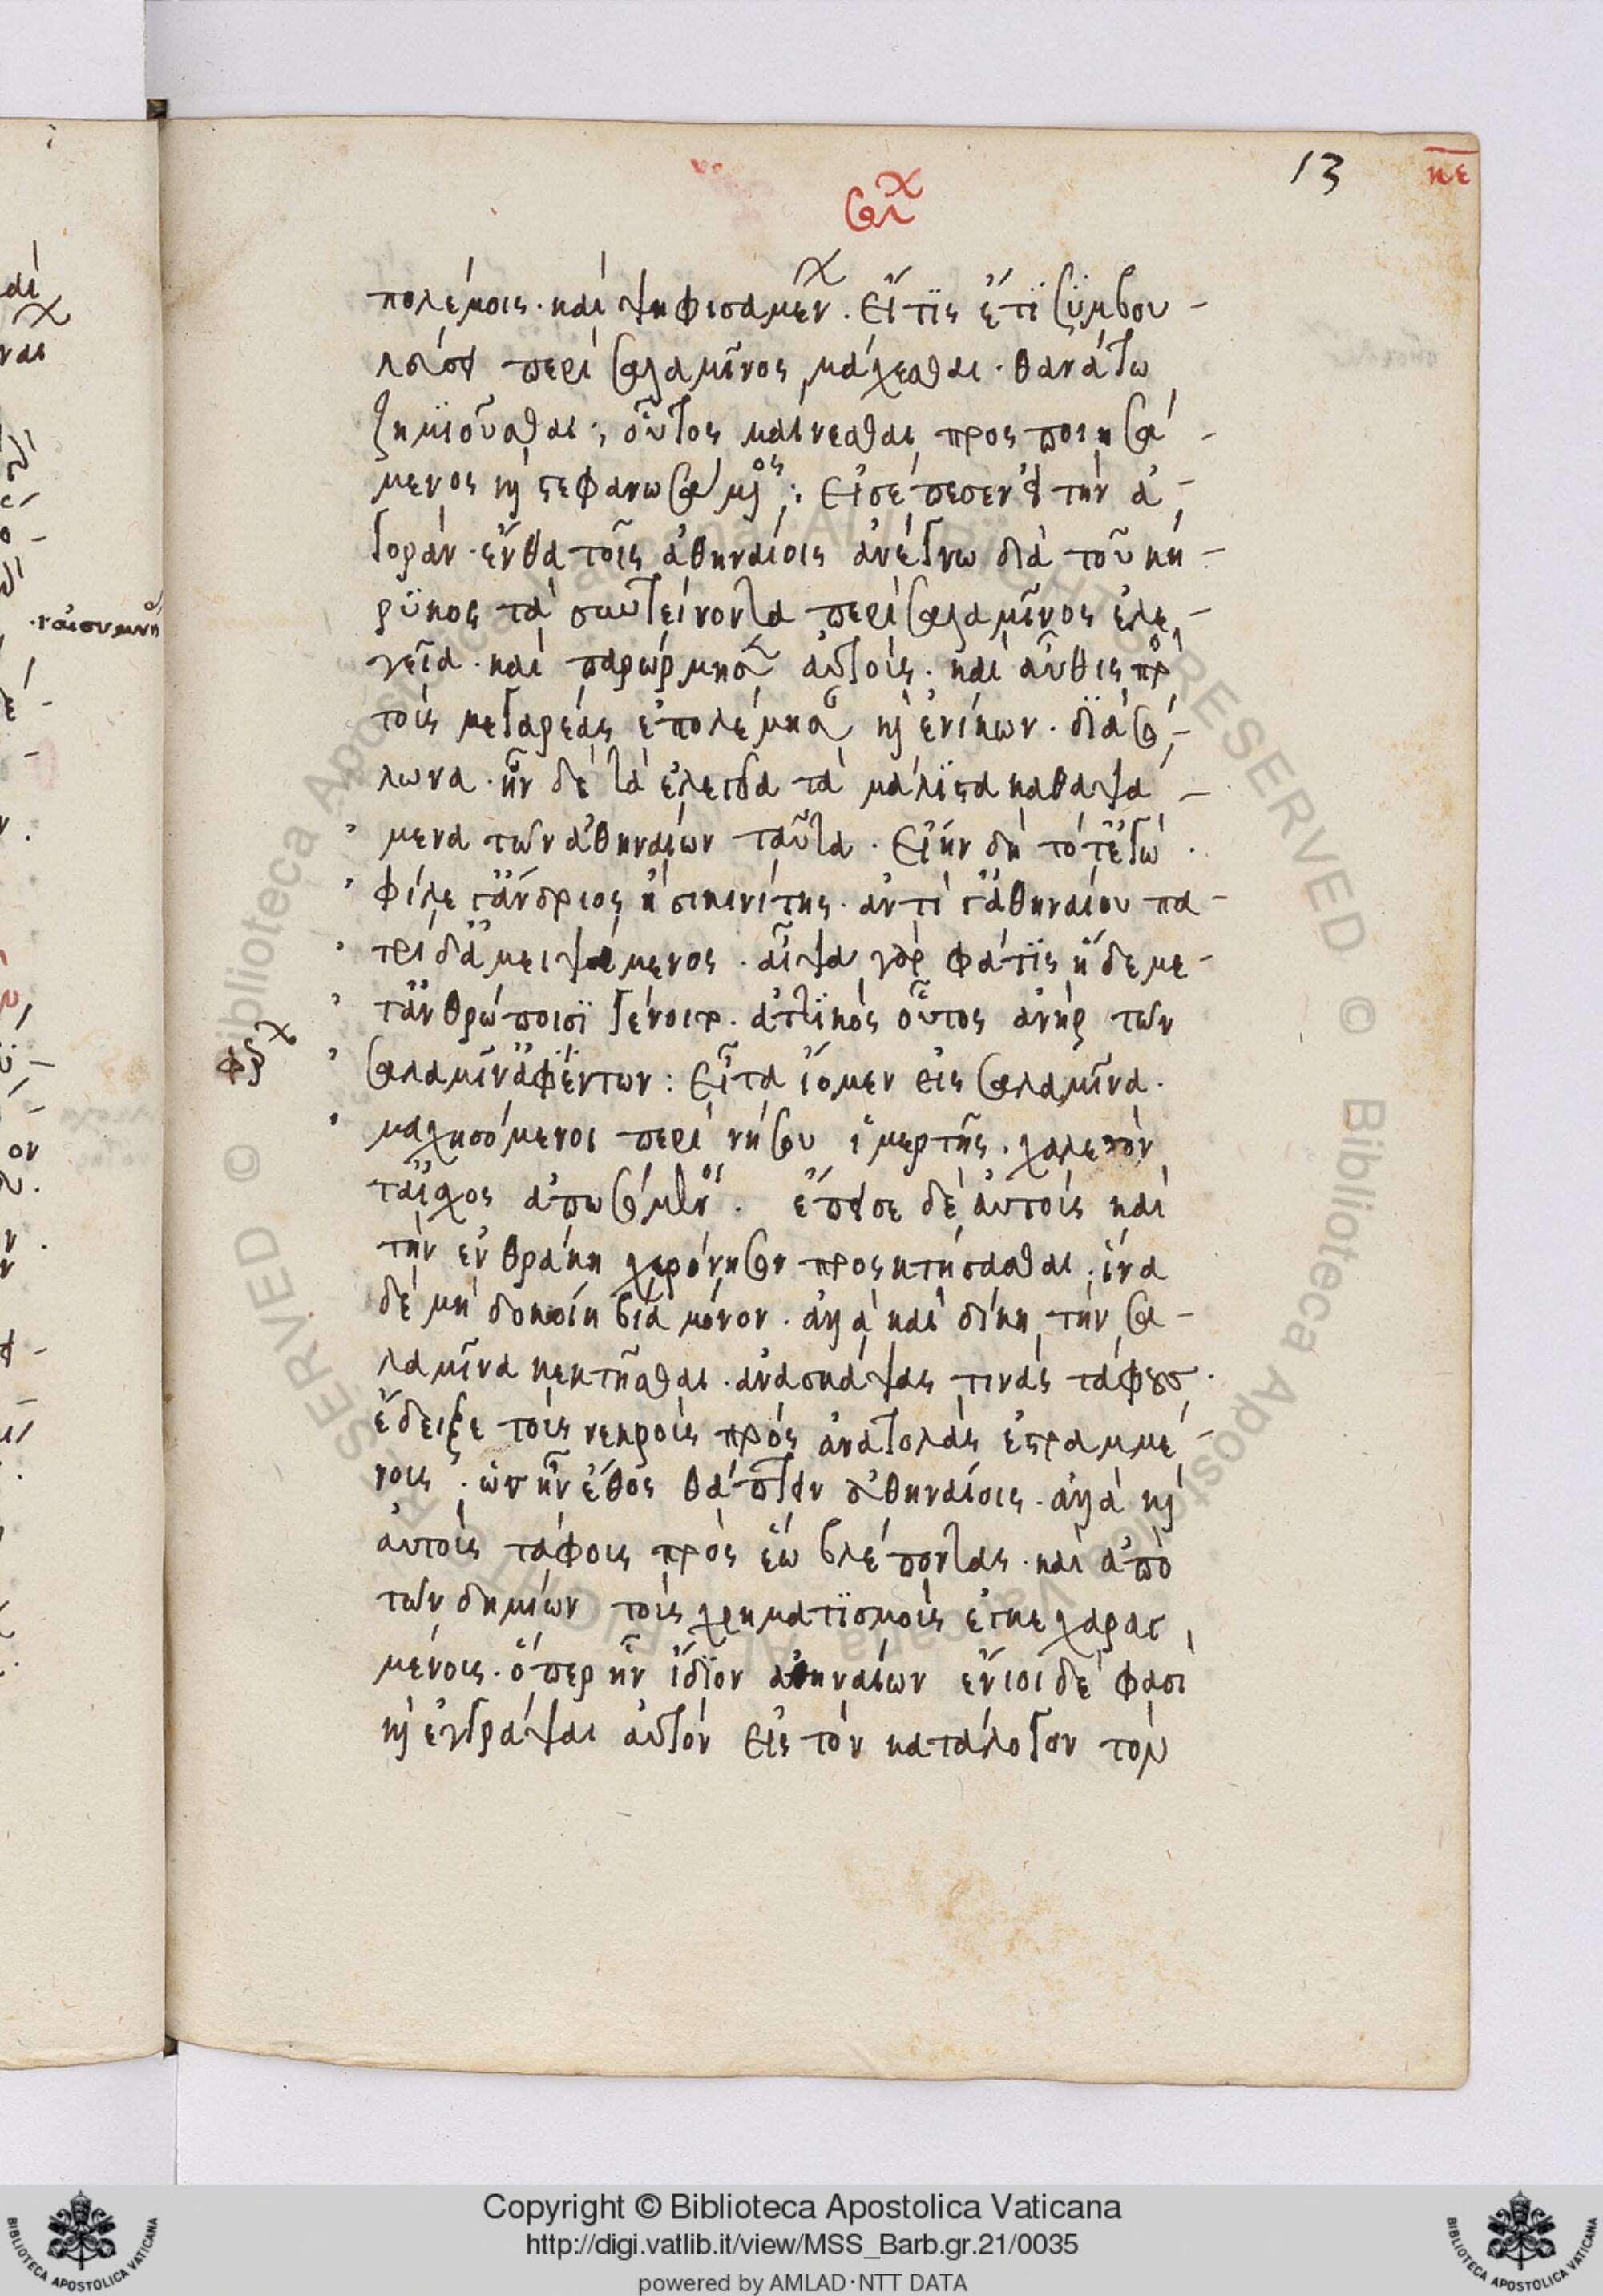 13
κε
σιχ
πολέμοις · καὶ ψηφισαμέν . εἴ τϊς ἔτϊ ζϋμβου -
λεύει περὶ σαλαμῖνος μάχεσθαι · θανάτω
ζημϊοῦσθαι ; οὗτος μαίνεσθαι προσποιησά -
μενος καὶ στεφανωσάμενος : εἰσέπεσεν εἰς τὴν ἀ -
γοράν · ἔνθα τοῖς ἀθηναίοις ἀνέγνω διὰ τοῦ κή -
ρϋκος τὰ συντείνοντα περὶ σαλαμῖνος ἐλε -
γεῖα · καὶ παρώρμησεν αὐτούς · καὶ αὖθις πρὸς
τοὺς μεγαρέας ἐπολέμησαν καὶ ἐνίκων . δϊὰ σό -
λωνα · ἦν δὲ τὰ ἐλεγεῖα τὰ μάλϊστα καθαψά -
μενα τῶν ἀθηναίων ταῦτα . εἴην δὴ τότ' ἐγώ .
φιλεγάνδριος ἢ σικινίτης · ἀντί γ' ἀθηναίου πα -
τρίδ' ἀμειψάμενος . αἶψα γὰρ φάτϊς ἥδε με -
τ' ἀνθρώποισϊ γένοιτο . ἀττϊκὸς οὗτος ἀνὴρ τῶν
σαλαμιναφέντων : εἶτα ἴομεν εἰς σαλαμῖνα .
μαχησόμενοι περὶ νήσου ἱμερτῆς . χαλεπόν
τ' αἶσχος ἀπωσόμενοι . ἔπεισε δὲ αὐτοὺς καὶ
τὴν ἐν θράκη χερόνησον προσκτήσασθαι . ἵνα
δὲ μὴ δοκοίη βία μόνον . ἀλλὰ καὶ δίκη τὴν σα -
λαμῖνα κεκτῆσθαι . ἀνασκάψας τινὰς τάφους .
ἔδειξε τοὺς νεκροὺς πρὸς ἀνατολὰς ἐστραμμέ -
νους . ὡς ἦν ἔθος θάπτειν ἀθηναίοις . ἀλλὰ καὶ
αὐτοὺς τάφους πρὸς ἕω βλέποντας . καὶ ἀπὸ
τῶν δημίων τοὺς χρηματϊσμοὺς ἐγκεχαραγ
μένους . ὅπερ ἦν ἴδϊον ἀθηναίων ἔνιοι δέ φασι
καὶ ἐγγράψαι αὐτὸν εἰς τὸν κατάλογον τοῦ